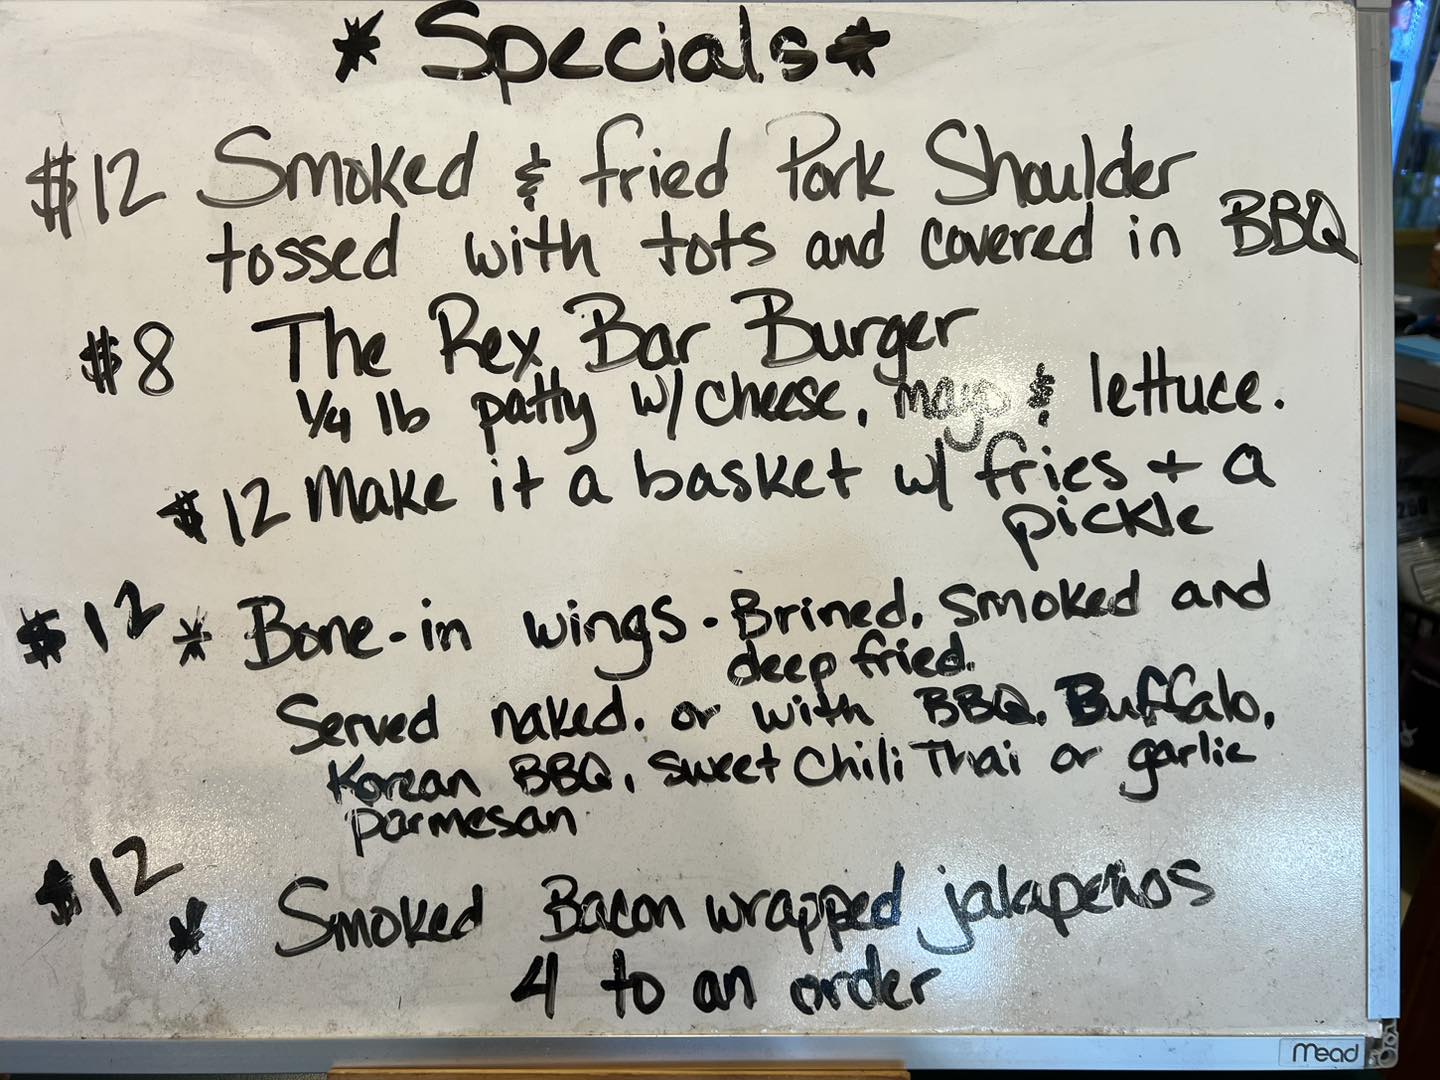 * Specials *
$12 Smoked & fried Pork Shoulder
tossed with tots and covered in BBQ
$8 The Rex Bar Burger
1/4 lb patty w/ cheese, mayo & lettuce.
$12 Make it a basket w/ fries + a
pickle
$12 * Bone-in wings - Brined, smoked and
deep fried.
Served naked, or with BBQ, Buffalo,
Korean BBQ, Sweet Chili Thai or garlic
parmesan
$12
* Smoked Bacon wrapped jalapeños
4 to an order
Mead